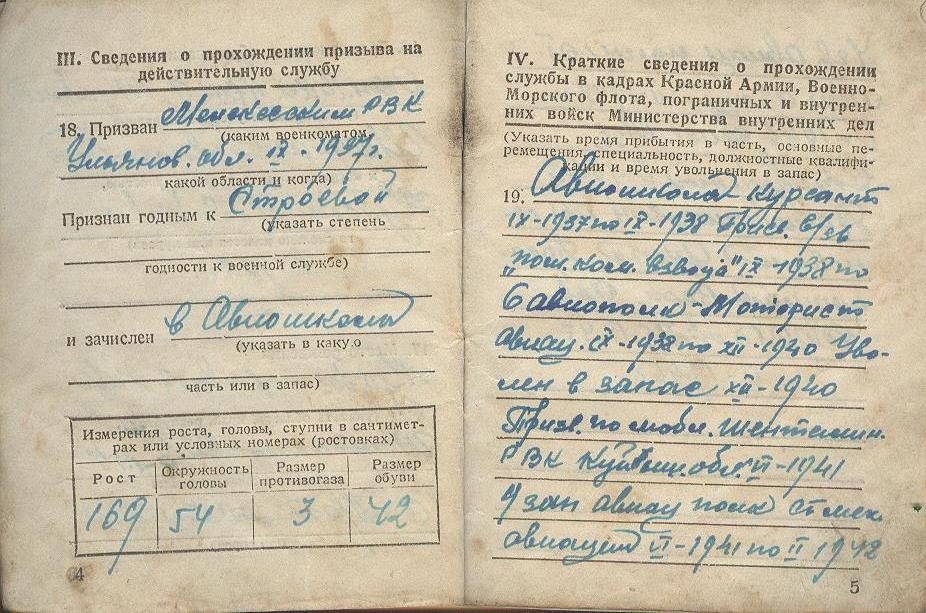 III. Сведения о прохождении призыва на
действительную службу
18. Призван Мелекесским РВК
(каким военкоматом,
Ульянов. обл. IX. 1937г.
какой области и когда)
Признан годным к Строевой
(указать степень
годности к военной службе)
и зачислен в Авиошколу
(указать в каку.о
часть или в запас)
Измерения роста, головы, ступни в сантимет-
рах или условных номерах (ростовках)
Рост Окружность головы Размер противогаза Размер обуви
169 54 3 42
4
IV. Краткие сведения о прохождении
службы в кадрах Красной Армии, Военно-
Морского флота, пограничных и внутрен-
них войск Министерства внутренних дел
(Указать время прибытия в часть, основные пе-
ремещения, специальность, должностные квалифи-
кации и время увольнения в запас)
19. Авиошкола-курсант
IX-1937 по IX-1938 Присв. в/зв
"пом. ком. взвода" IX-1938 по
6 авиополк-Моторист
авиац. IX-1938 по XII-1940 Уво-
лен в запас XII-1940
Призв. по мобл. Шенталин.
РВК Куйбыш. обл. VI-1941
зап авиац полк ст мех.
авиации VI-1941 по II 1942
5